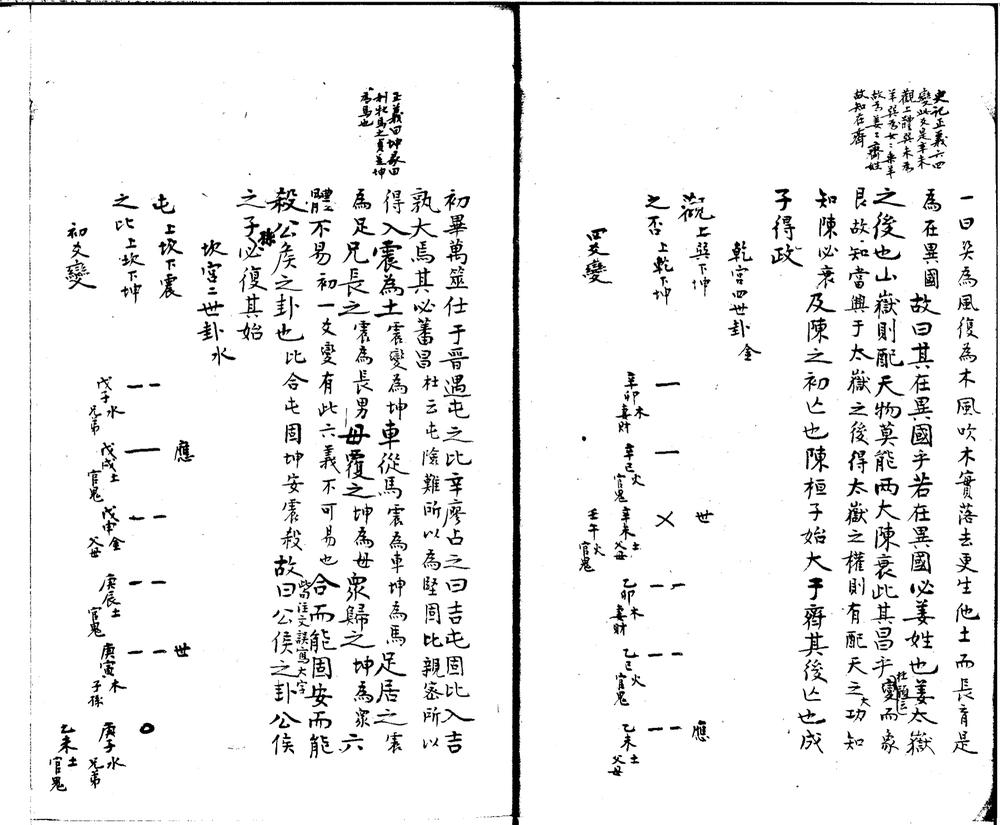 史記正義六四
變此爻是辛未
觀上體巽未為
羊巽為女女乘羊
故為姜姜齊姓
故知在齊
一曰巽為風復為木風吹木實落去更生他土而長育是
為在異國 故曰其在異國乎若在異國必姜姓也姜太嶽
之後也山嶽則配天物莫能兩大陳衰此其昌乎 變而象
杜預云
艮故知當興于太嶽之後得太嶽之權則有配天之大功知
知陳必衰 及陳之初亡也陳桓子始大于齊其後亡也成
子得政
乾宮四世卦金
觀上巽下坤
之否上乾下坤
四爻變
辛卯木妻財
辛巳火官鬼
世 辛未土父母 壬午火官鬼
乙卯木妻財
乙巳火官鬼
應 乙未土父母
正義曰坤彖曰
利牝馬之貞是坤
為馬也
初畢萬筮仕于晉遇屯之比辛廖占之曰吉屯固比入吉
孰大焉其必蕃昌 杜云屯險難所以為堅固比親密所以
得入 震為土 震變為坤 車從馬 震為車坤為馬 足居之 震
為足 兄長之 震為長男 母覆之 坤為母 眾歸之 坤為眾 六
體不易 初一爻變有此六義不可易也 合而能固安而能
殺公矦之卦也 比合屯固坤安震殺 故曰公侯之卦 公侯
皆注文誤寫大字
之子孫必復其始
坎宮二世卦水
屯上坎下震
之比上坎下坤
初爻變
戊子水兄弟
應 戊戌土官鬼
戊申金父母
庚辰土官鬼
世 庚寅木子孫
庚子水兄弟 乙未土官鬼